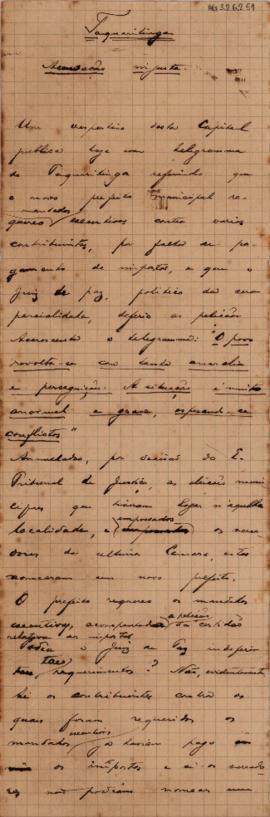 AG 3.2.6.2.51
Taquaritinga
Accusação injusta.
Um vespertino desta Capital
publica hoje um telegramma
de Taquaritinga referindo que
o novo prefeito municipal re-
quereu mandados executivos contra varios
contribuintes, por falta de pa-
gamento de impostos, e que o
juiz de paz, politico da sua
parcialidade, deferiu as petições.
Accrescenta o telegramma: "O povo
revolta-se com tanta anarchia
e perseguição. A situação é muito
anormal e grave, esperando-se
conflictos"
Annulladas, por decisão do E.
Tribunal de Justiça, as eleições muni-
cipaes que tiveram logar n'aquella
localidade, e empossados os verea-
dores da ultima Camara, estes
nomearam um novo prefeito.
O prefeito requereu os mandados
executivos, acompanhada a petição da certidão
relativa aos impostos.
o juiz de Paz indeferir
taes requerimentos? Não, evidentemente,
Se os contribuintes contra os
quaes foram requeridos os
mandados já haviam pago
os impostos e si os vereado-
res não podiam nomear um